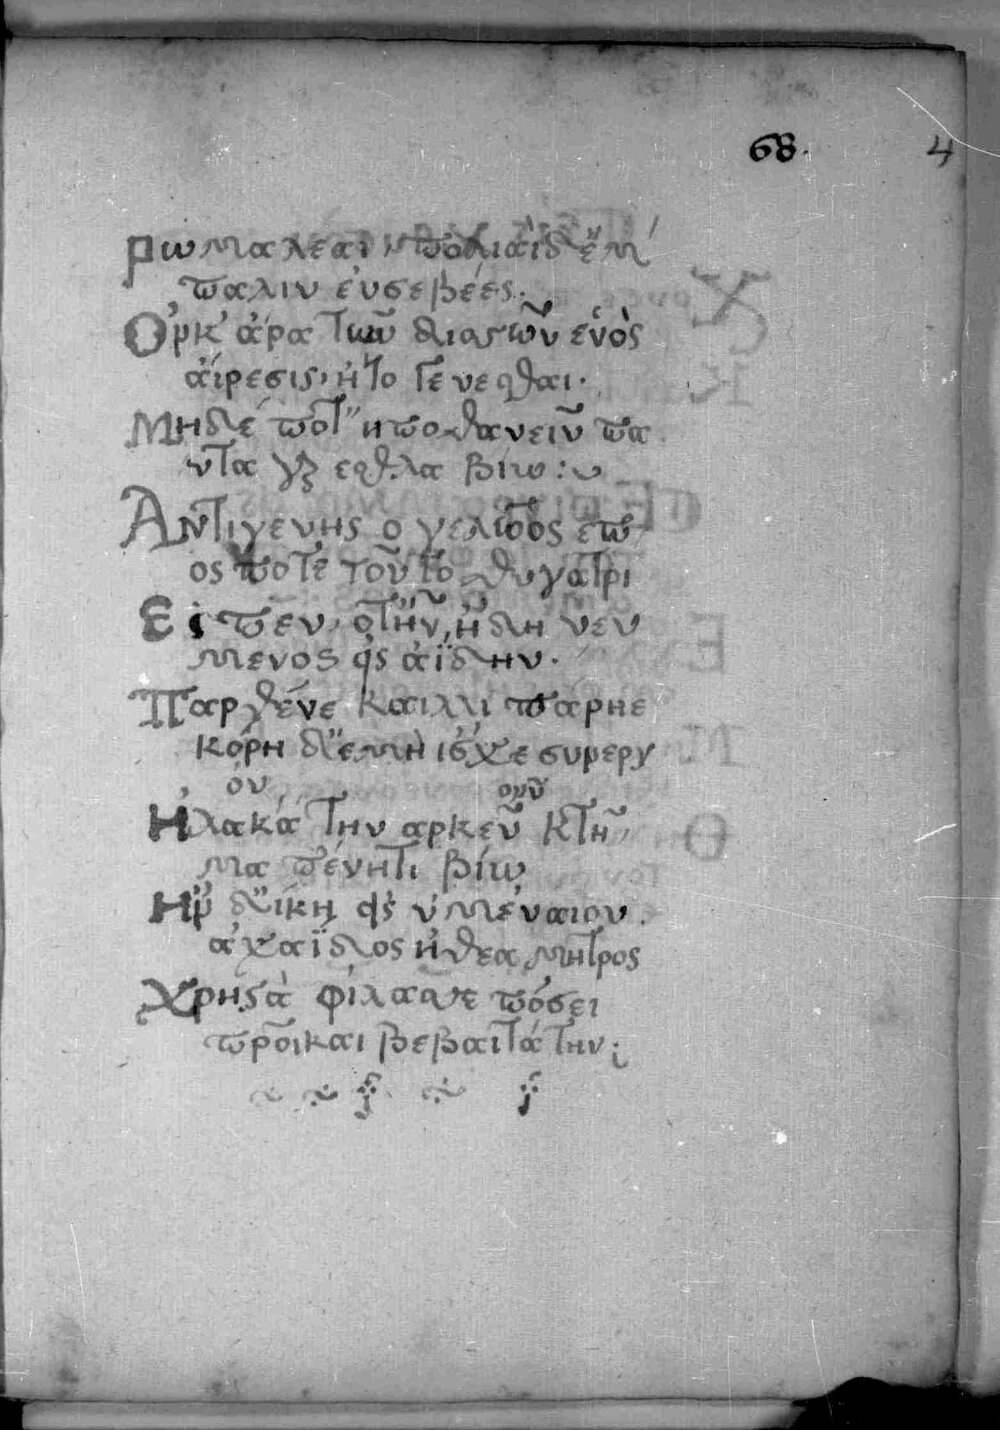 68. 4
Ρωμαλεαι, πολιαὶ δ' ἔμ
παλιν ευσεβέες.
Ὀρκ ἀρα των διασῶν ἑνὸς
αἵρεσις, ἢ το γενεσθαι.
Μηδέ ποτ' η το θανειν πα
ντα γρ εσθλα βίω :~
Αντιγενης ο γελωος επ
ος ποτε τοῦτο θυγατρι
Εις πεν, οτ' ἦν ἤδη νευ
μενος εις ἀΐδην.
Παρθένε καιλλι παρηε
κόρη δ' εμὴ ισχε συρερy
όν
Ἠλακά την αρκευν κτη
ουν
μα πένητι βίω
Ην δ' ίκη εις ὑμέναιον.
ἀχαΐδος ἠθεα μητρος
Χρηστὰ φίλασσε πόσει
προικαι βεβαιτάτην;